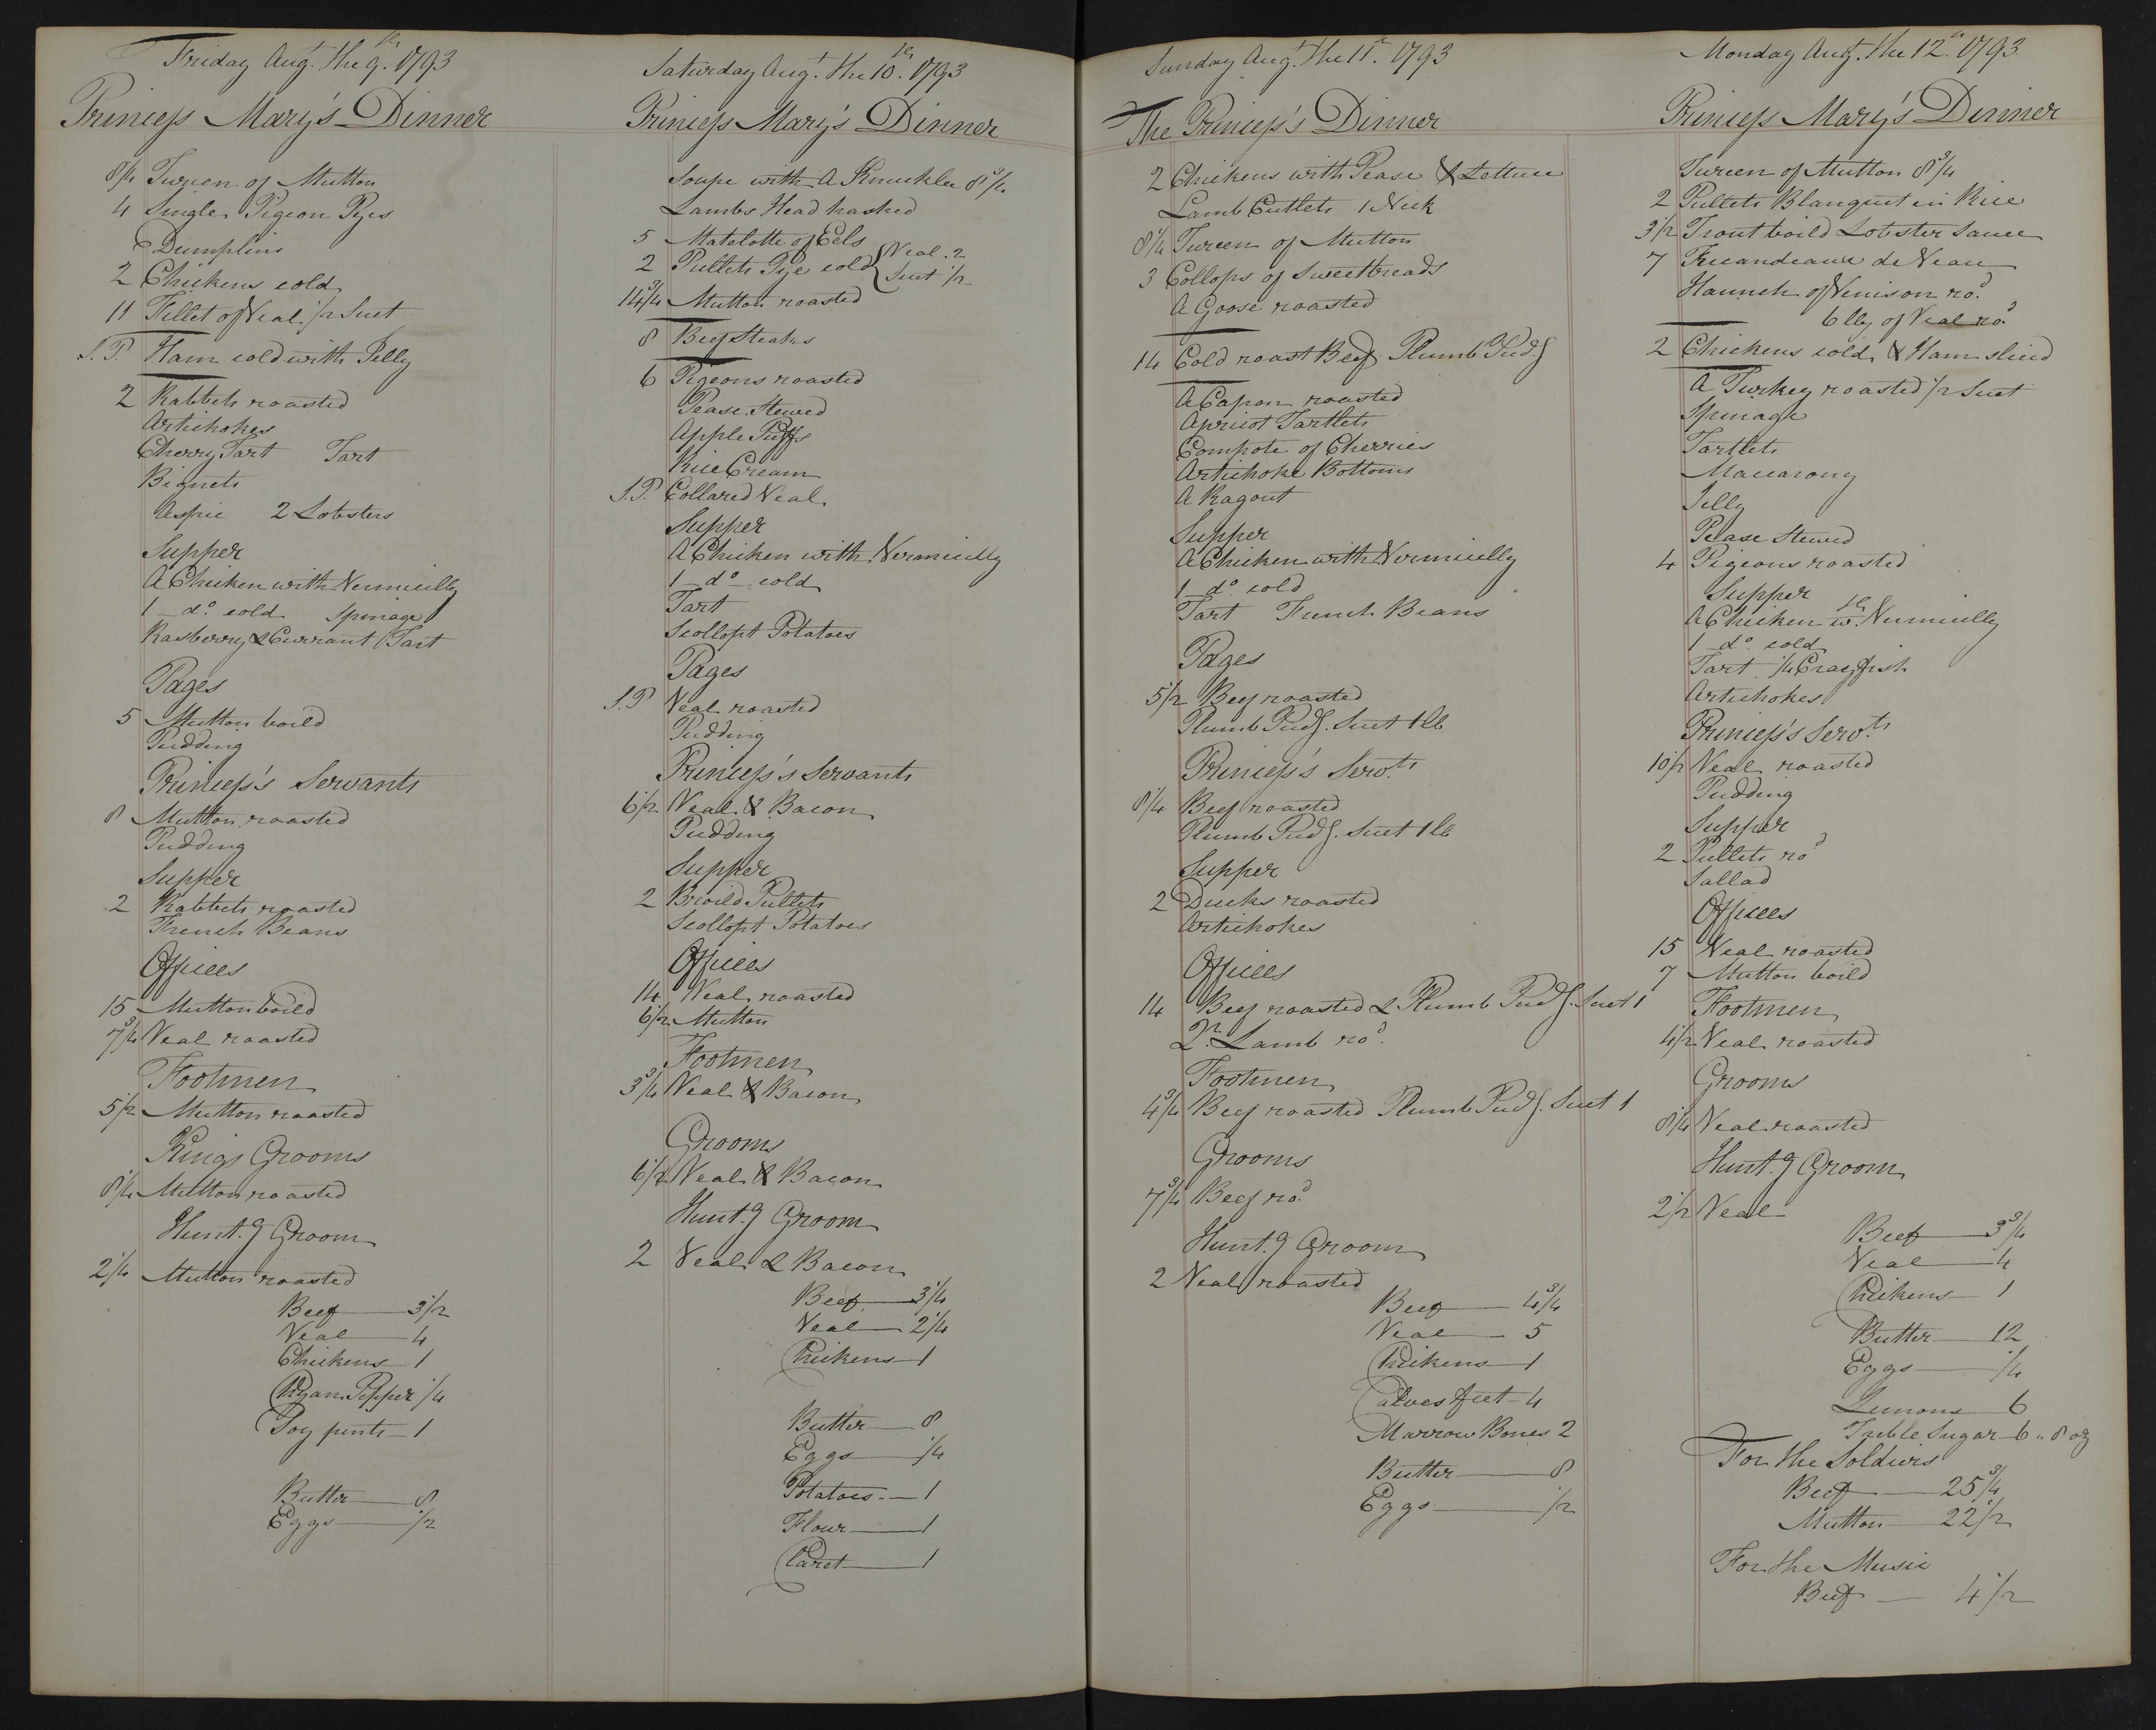 Friday Augt. the 9th. 1793
Princess Mary's Dinner
8¼ Tureen of Mutton
4 Single Pigeon Pyes
Dumplins
2 Chickens cold
11 Fillet of Veal. ½ Suet
S.P. Ham cold with Jelly
2 Rabbets roasted
Artichokes
Cherry Tart Tart
Bignets
Aspic 2 Lobsters
Supper
A Chicken with Vermicelly
1 do. cold Spinage
Rasberry & Currant Tart
Pages
5 Mutton boild
Pudding
Princess's Servants
8 Mutton roasted
Pudding
Supper
2 Rabbets roasted
French Beans
Offices
15 Mutton boild
7¾ Veal roasted
Footmen
5½ Mutton roasted
Kings Grooms
8¼ Mutton roasted
Hunt.g Groom
2¼ Mutton roasted
Beef 3½
Veal 4
Chickens 1
Chyan Pepper ¼
Soy pints 1
Butter 8
Eggs ½
Saturday Augt. the 10th. 1793
Princess Mary's Dinner
Soupe with A Knuckle 8¾
Lambs Head hashed
5 Matelotte of Eels
2 Pullets Pye cold { Veal. 2
Suet ½
14¾ Mutton roasted
8 Beef Steaks
6 Pigeons roasted
Pease Stewed
Apple Puffs
Rice Cream
S.P. Collared Veal
Supper
A Chicken with Vermicelly
1 do cold
Tart
Scollopt Potatoes
Pages
S.P Veal roasted
Pudding
Princess's Servants
6½ Veal & Bacon
Pudding
Supper
2 Broild Pullets
Scollopt Potatoes
Offices
14 Veal roasted
6½ Mutton
Footmen
3¾ Veal & Bacon
Grooms
6½ Veal & Bacon
Hunt.g Groom
2 Veal & Bacon
Beef 3¼
Veal 2¼
Chickens 1
Butter 8
Eggs ¼
Potatoes 1
Flour 1
Claret 1
Sunday Augt. the 11th. 1793
The Princess's Dinner
2 Chickens with Pease & Lettuce
Lamb Cutlets 1 Neck
8¼ Tureen of Mutton
3 Collops of Sweetbreads
A Goose roasted
14 Cold roast Beef Plumb Pudg
A Capon roasted
Apricot Tartlets
Compote of Cherries
Artichoke Bottoms
A Ragout
Supper
A Chicken with Vermicelly
1 do. cold
Tart French Beans
Pages
5½ Beef roasted
Plumb Pudg. Suet 1 lb
Princess's Servts
8¼ Beef roasted
Plumb Pudg. Suet 1 lb
Supper
2 Ducks roasted
Artichokes
Offices
14 Beef roasted & Plumb Pudg. Suet 1
Qr. Lamb rod.
Footmen
4¾ Beef roasted Plumb Pudg. Suet 1
Grooms
7¾ Beef rod.
Hunt.g Groom
2 Veal roasted
Beef 4¾
Veal 5
Chickens 1
Calves feet 4
Marrow Bones 2
Butter 8
Eggs ½
Monday Augt. the 12th. 1793
Princess Mary's Dinner
Tureen of Mutton 8¾
2 Pullets Blanquet in Rice
3½ Trout boild Lobster Sauce
7 Fricandeaux de Veau
Haunch of Venison rod.
6 lb of Veal rod.
2 Chickens cold & Ham sliced
A Turkey roasted ½ Suet
Spinage
Tartlets
Maccarony
Jelly
Pease Stewed
4 Pigeons roasted
Supper
A Chicken wth. Vermicelly
1 do. cold
Tart. ¼ Crayfish
Artichokes
Princess's Servts
10½ Veal roasted
Pudding
Supper
2 Pullets rod
Sallad
Offices
15 Veal roasted
7 Mutton boild
Footmen
4½ Veal roasted
Grooms
8¼ Veal roasted
Hunt.g Groom
2½ Veal
Beef 3¾
Veal 4
Chickens 1
Butter 12
Eggs ¼
Lemons 6
Treble Sugar 6 .. 8 oz
For the Soldiers
Beef 25¾
Mutton 22½
For the Music
Beef 4½